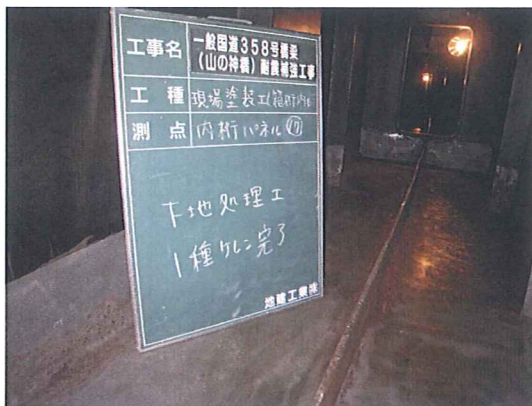 工事名 一般国道358号橋梁
(山の神橋)耐震補強工事
工種 現場塗装工(箱桁内面)
測点 内桁パネル⑰
下地処理工
1種ケレン完了